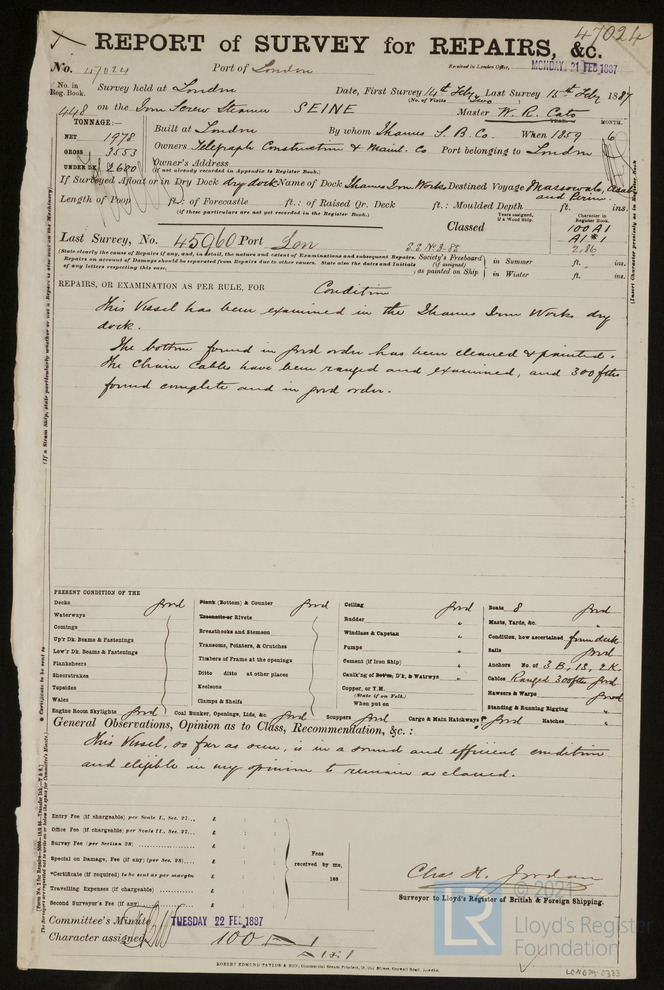 47024
REPORT of SURVEY for REPAIRS, &c.
No. 47024 Port of London Received in London Office, MONDAY, 21 FEB 1887
No. in Reg. Book. Survey held at London Date, First Survey 14th Feby Last Survey 15th Feby 1887
(No. of Visits Two)
448 on the Iron Screw Steamer SEINE Master W. R. Cato
TONNAGE:—
NET 1978
GROSS 3553
UNDER DK 2680
Built at London By whom Thames S. B. Co. When 1859 MONTH. 6
Owners Telegraph Construction & Maint. Co Port belonging to London
Owner's Address
(if not already recorded in Appendix to Register Book.)
If Surveyed Afloat or in Dry Dock dry dock Name of Dock Thames Iron Works Destined Voyage Massowah, Assab and Perim.
Length of Poop ft.: of Forecastle ft.: of Raised Qr. Deck ft.: Moulded Depth ft. ins.
(if these particulars are not yet recorded in the Register Book.)
Classed
Years assigned, if a Wood Ship.
Character in Register Book.
100 A1
A1*1
2,86
Last Survey, No. 45960 Port Lon
(State clearly the cause of Repairs if any, and, in detail, the nature and extent of Examinations and subsequent Repairs.
Repairs on account of Damage should be separated from Repairs due to other causes. State also the dates and Initials
of any letters respecting this case.
Society's Freeboard (if assigned) as painted on Ship
in Summer ft. ins.
in Winter ft. ins.
REPAIRS, OR EXAMINATION AS PER RULE, FOR Condition
This Vessel has been examined in the Thames Iron Works dry
dock.
The bottom found in good order has been cleaned & painted.
The Chain Cables have been ranged and examined, and 300 fths
found complete and in good order.
PRESENT CONDITION OF THE
Decks good
Waterways
Comings
Up'r Dk. Beams & Fastenings
Low'r Dk. Beams & Fastenings
Planksheers
Sheerstrakes
Topsides
Wales
Engine Room Skylights good
Plank (Bottom) & Counter good
Treenails or Rivets
Breasthooks and Stemson
Transoms, Pointers, & Crutches
Timbers of Frame at the openings
Ditto ditto at other places
Keelsons
Clamps & Shelfs
Coal Bunker, Openings, Lids, &c. good
Ceiling good
Rudder "
Windlass & Capstan "
Pumps "
Cement (if Iron Ship) "
Caulk'ng of Bot'm, D'k, & Watrwys "
Copper, or Y.M.
(State if on Felt.)
When put on
Scuppers good Cargo & Main Hatchways good Hatches "
Boats 8 good
Masts, Yards, &c.
Condition, how ascertained from deck
Sails good
Anchors No. of 3 B, 1S, 2K.
Cables Ranged 300 fths good
Hawsers & Warps good
Standing & Running Rigging "
General Observations, Opinion as to Class, Recommendation, &c.:
This Vessel, so far as seen, is in a sound and efficient condition
and eligible in my opinion to remain as classed.
Entry Fee (if chargeable) per Scale I., Sec. 27... £
Office Fee (if chargeable) per Scale II., Sec. 27... £
Survey Fee (per Section 28) £
Special on Damage, Fee (if any) (per Sec. 28) £
*Certificate (if required) to be sent as per margin £
Travelling Expenses (if chargeable) £
Second Surveyor's Fee (if any) £
Fees received by me,
188
Chas. H. Jordan
Surveyor to Lloyd's Register of British & Foreign Shipping.
Committee's Minute TUESDAY 22 FEB 1887
Character assigned 100 A 1
A 1*1
ROBERT EDMUND TAYLOR & SON, Commercial Steam Printers, 19, Old Street, Goswell Road, London.
© 2021
LR
Lloyd's Register
Foundation